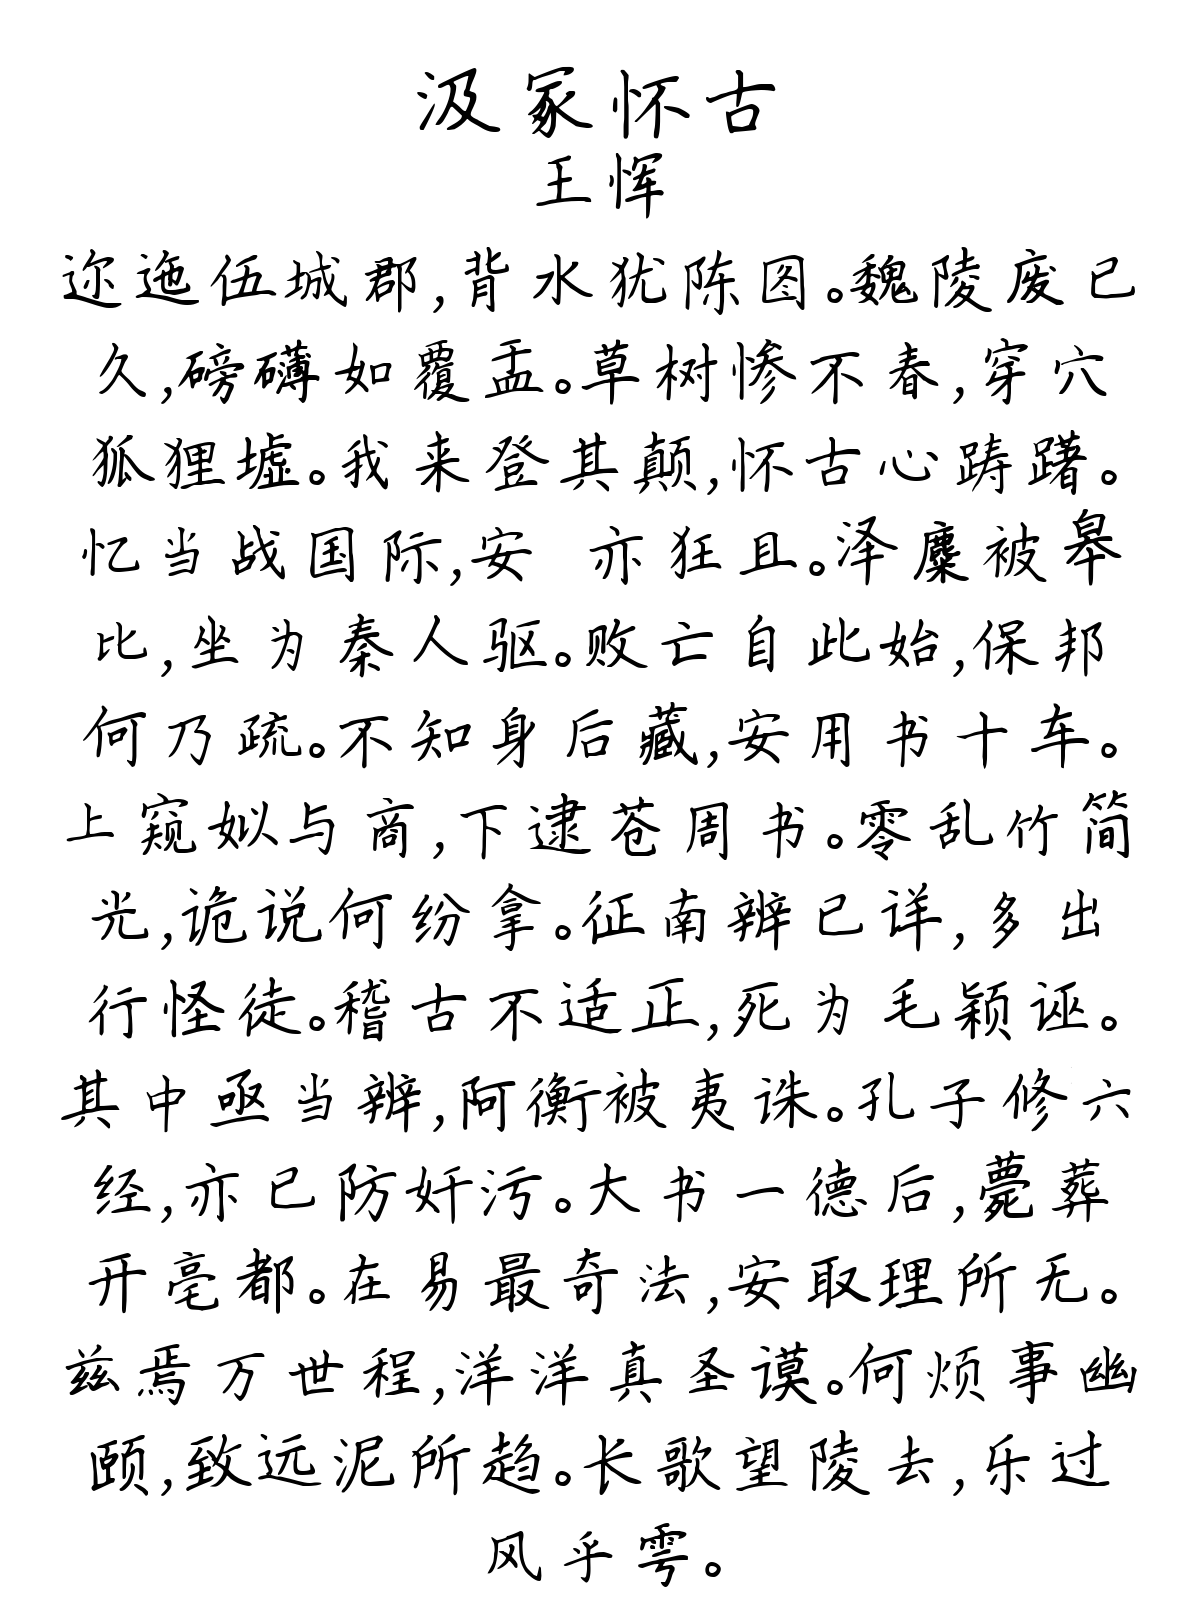 汲冢怀古
王恽
迩迤伍城郡,背水犹陈图。魏陵废已
久,磅礴如覆盂。草树惨不春,穿穴
狐狸墟。我来登其颠,怀古心踌躇。
忆当战国际,安 亦狂且。泽麋被皋
比,坐为秦人驱。败亡自此始,保邦
何乃疏。不知身后藏,安用书十车。
上窥姒与商,下逮苍周书。零乱竹简
光,诡说何纷拿。征南辨已详,多出
行怪徒。稽古不适正,死为毛颖诬。
其中亟当辨,阿衡被夷诛。孔子修六
经,亦已防奸污。大书一德后,薨葬
开亳都。在易最奇法,安取理所无。
兹焉万世程,洋洋真圣谟。何烦事幽
颐,致远泥所趋。长歌望陵去,乐过
风乎雩。